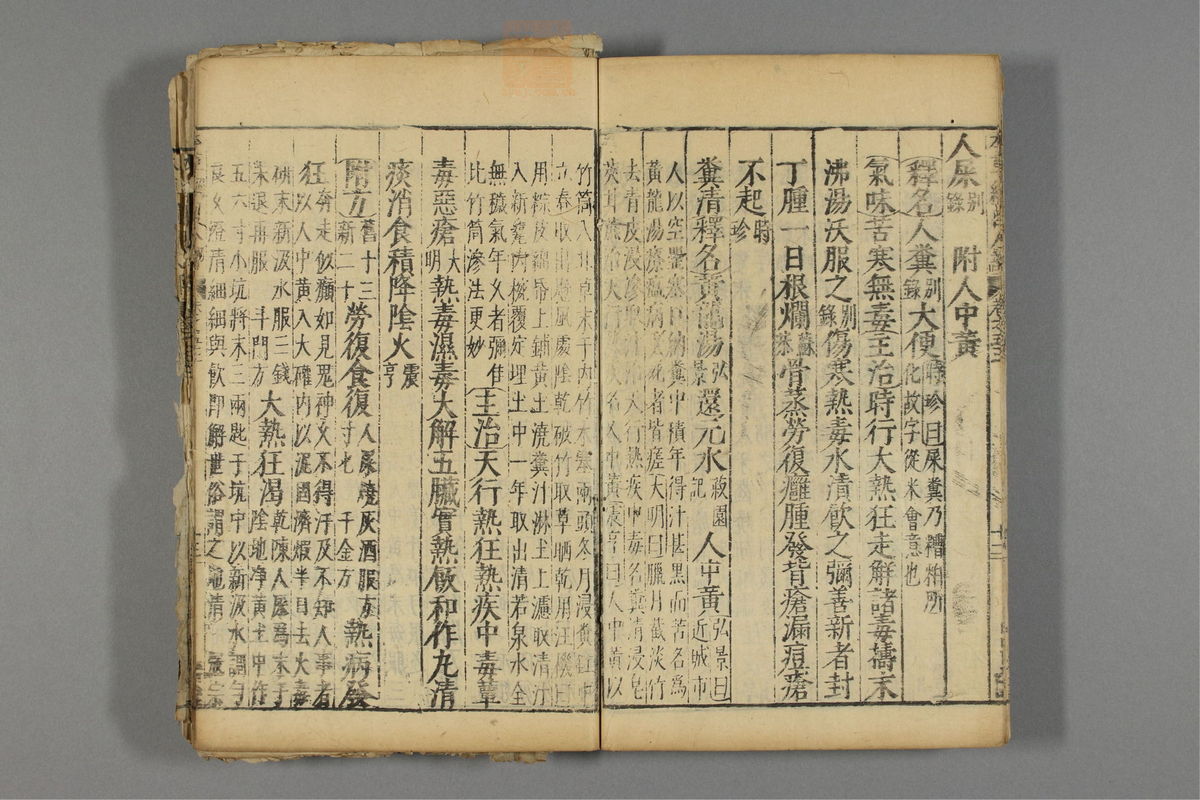 人屎別錄附人中黃
釋名人糞別錄大便時珍曰屎糞乃糟粕所化故字從米會意也
氣味苦寒無毒主治時行大熱狂走解諸毒擣末
沸湯沃服之別錄傷寒熱毒水漬飲之彌善新者封
丁腫一日根爛蘇恭骨蒸勞復癰腫發背瘡漏痘瘡
不起時珍
糞清釋名黃龍湯弘景還元水菽園記人中黃弘景曰近城市
人以空罌塞口納糞中積年得汁甚黑而苦名爲
黃龍湯療瘟病垂死者皆瘥大明曰臘月截淡竹
去青皮浸滲取汁治天行熱疾中毒名糞清浸皂
莢甘蔗治天行熱疾名人中黃震亨曰人中黃以
竹筒入甘草末于內竹木塞兩頭冬月浸糞缸中
立春取出懸風處陰乾破竹取草晒乾用汪機曰
用棕皮綿帋上鋪黃土澆糞汁淋土上濾取清汁
入新甕內椀覆定埋土中一年取出清若泉水全
無穢氣年久者彌佳比竹筒滲法更妙主治天行熱狂熱疾中毒蕈
毒惡瘡大明熱毒濕毒大解五臟實熱飯和作丸清
痰消食積降陰火震亨
附方舊十三新二十勞復食復人屎燒灰酒服方寸匕千金方熱病發
狂奔走似癲如見鬼神久不得汗及不知人事者
以人中黃入大確內以泥固濟煅半日去火毒
研末新汲水服三錢未退再服斗門方大熱狂渴乾陳人屎爲末于
陰地淨黃土中作
五六寸小坑將末三兩匙于坑中以新汲水調勻
良久澄清細細與飲即解世俗謂之地清